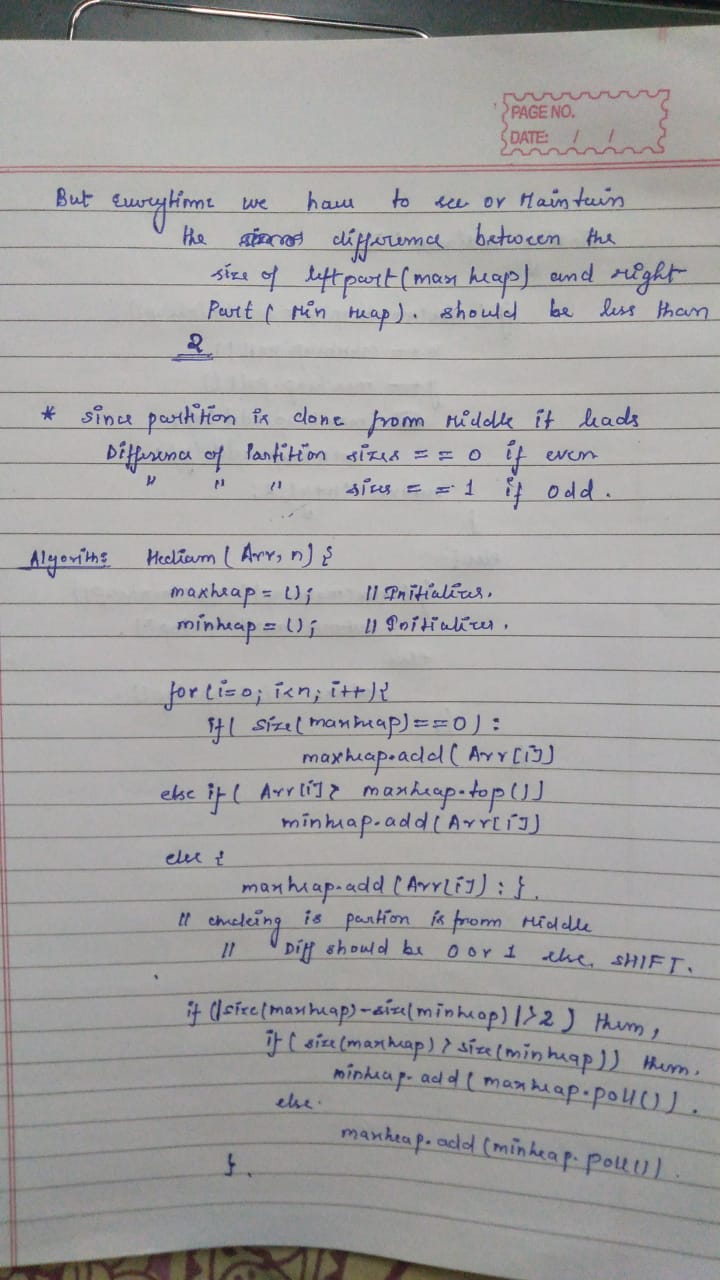 PAGE NO.
DATE: / /
But everytime we have to see or Maintain
the difference between the
size of leftpart (max heap) and right
Part ( Min heap). should be less than
2
* since partition is done from Middle it leads
Difference of Partition sizes == 0 if even
" " " sizes == 1 if odd.
Algorithm Median ( Arr, n) {
maxheap = (); // Initializes.
minheap = (); // Initializes.
for (i=0; i<n; i++){
if( size(maxheap)==0) :
maxheap.add( Arr[i])
else if( Arr[i]> maxheap.top())
minheap.add(Arr[i])
else {
maxheap.add (Arr[i]) : }.
// checking is partion is from Middle
// Diff should be 0 or 1 else, SHIFT.
if (|size(maxheap)-size(minheap)|>2) then,
if( size(maxheap) > size(minheap)) then.
minheap.add( maxheap.poll()).
else.
maxheap.add (minheap.poll()).
}.